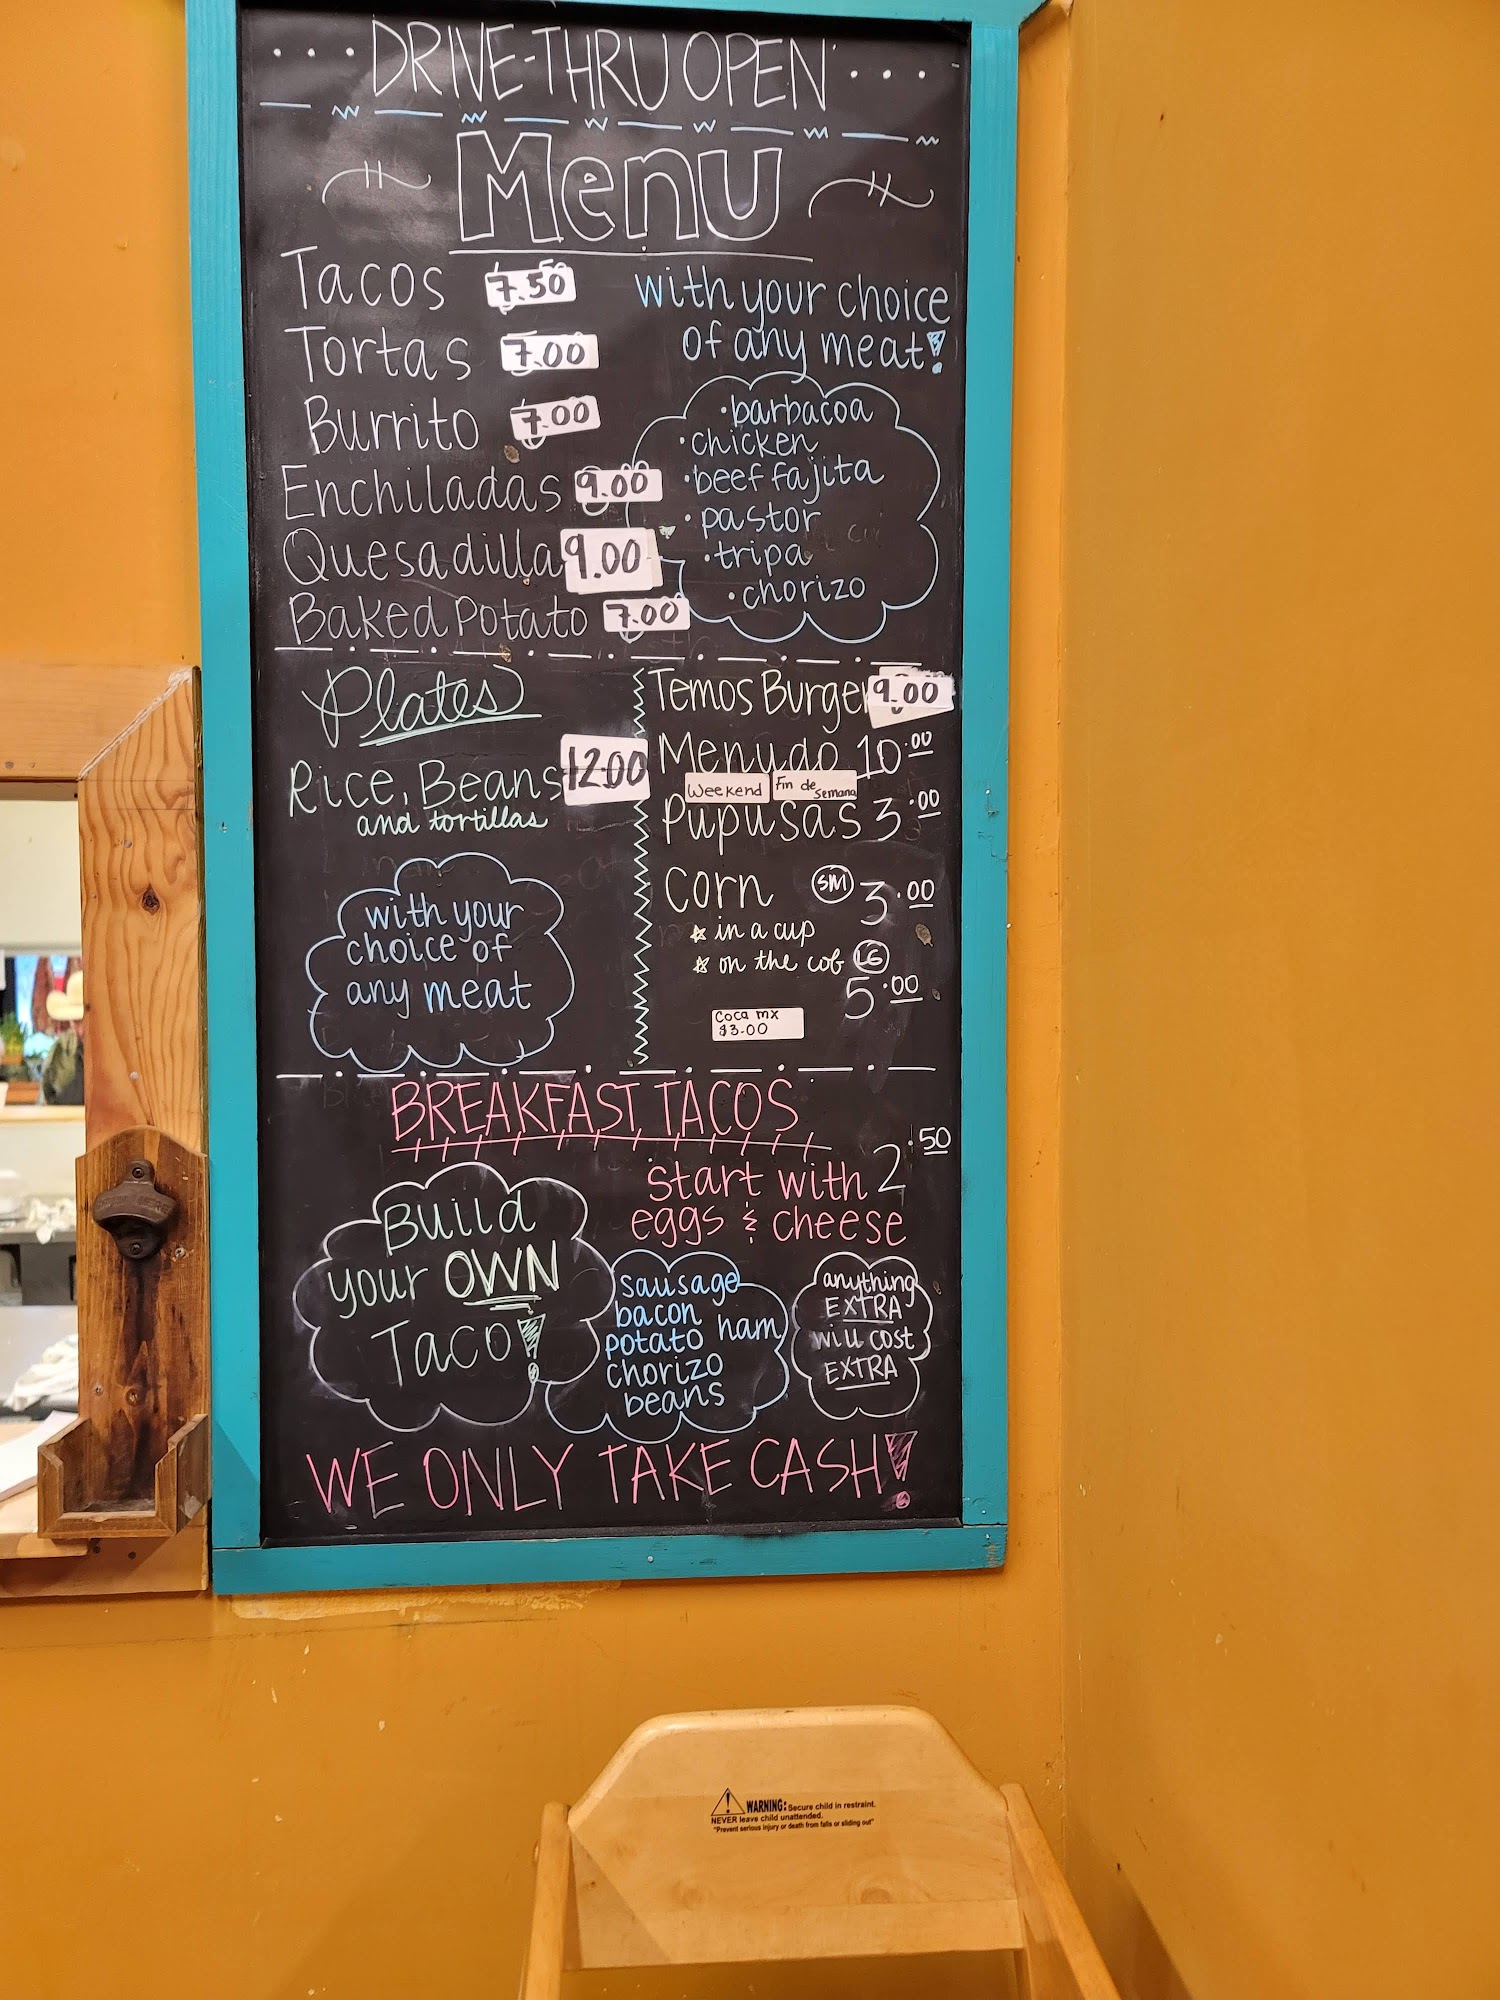 DRIVE-THRU OPEN
Menu
Tacos 7.50
Tortas 7.00
Burrito 7.00
Enchiladas 9.00
Quesadilla 9.00
Baked Potato 7.00
with your choice
of any meat!
• barbacoa
• chicken
• beef fajita
• pastor
• tripa
• chorizo
Plates
Rice, Beans 12.00
and tortillas
with your
choice of
any meat
Temos Burger 9.00
Menudo 10.00
Weekend Fin de semana
Pupusas 3.00
Corn SM 3.00
in a cup
on the cob LG
5.00
Coca mx
$3.00
BREAKFAST TACOS
2.50
start with
eggs & cheese
Build
your OWN
Taco!
sausage
bacon
potato ham
chorizo
beans
anything
EXTRA
will cost
EXTRA
WE ONLY TAKE CASH!
WARNING: Secure child in restraint.
NEVER leave child unattended.
"Prevent serious injury or death from falls or sliding out"